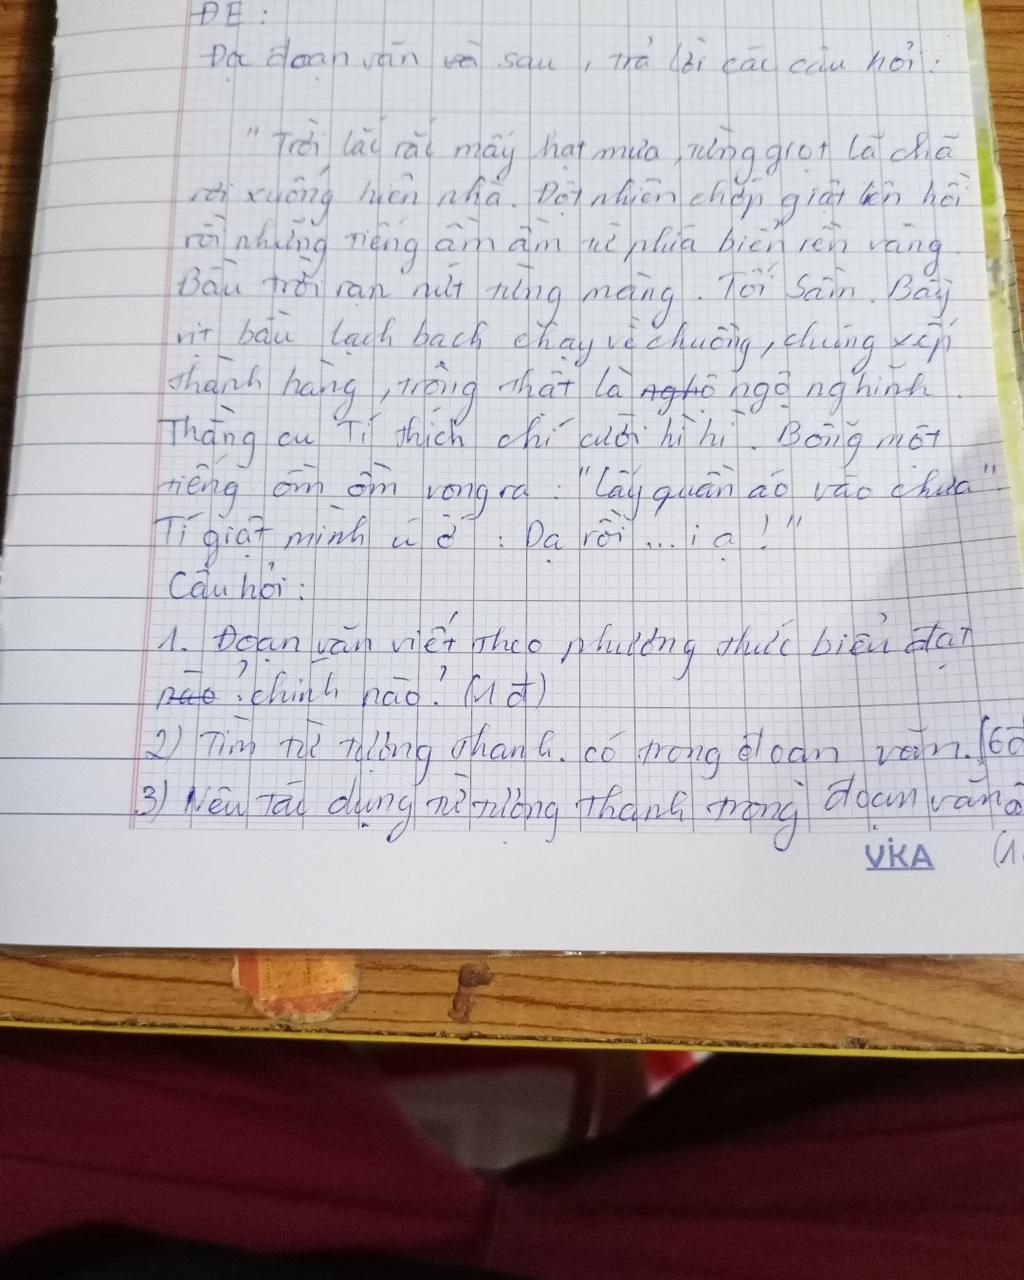 ĐE :
Đọc đoạn văn sau , trả lời các câu hỏi :
"Trời lắc rắc mấy hạt mưa , từng giọt lã chã
rơi xuống hiên nhà. Đột nhiên chớp giật lên hồi
rồi những tiếng ầm ầm từ phía biển rền vang.
Bầu trời rạn nứt từng mảng. Tối sầm. Bầy
vịt bầu lạch bạch chạy về chuồng, chúng xếp
thành hàng, trông thật là ngộ nghĩnh.
Thằng cu Tí thích chí cười hì hì. Bỗng một
tiếng ồm ồm vọng ra : "Lấy quần áo vào chưa"
Tí giật mình ú ớ : Dạ rồi ... i ạ !"
Câu hỏi :
1. Đoạn văn viết theo phương thức biểu đạt
chính nào ? (1 đ)
2) Tìm từ tượng thanh. có trong đoạn văn.
3) Nêu Tác dụng từ tượng thanh trong đoạn văn
VIKA